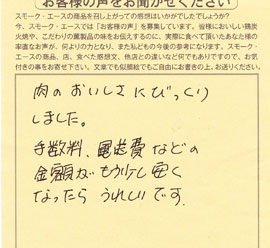 お客様の声をお聞かせください
スモーク・エースの商品を召し上がっての感想はいかがでしたでしょうか?
今、スモーク・エースでは「お客様の声」を募集しています。皆様においしい精炭
火焼や、こだわりの薫製品の味をお伝えするのに、実際に食べて頂いたあなた様の
率直なお声が、何よりの力となり、また私どもの今後の参考になります。スモーク・
エースの商品、店、食べた感想文、他店との違いなど何でもありですので、お気
付きの事をお寄せ下さい。文章でも似顔絵でもご自由にお書きの上、お送りください。
肉のおいしさにびっくり
しました。
手数料、運送費などの
金額がもう少し安く
なったらうれしいです。